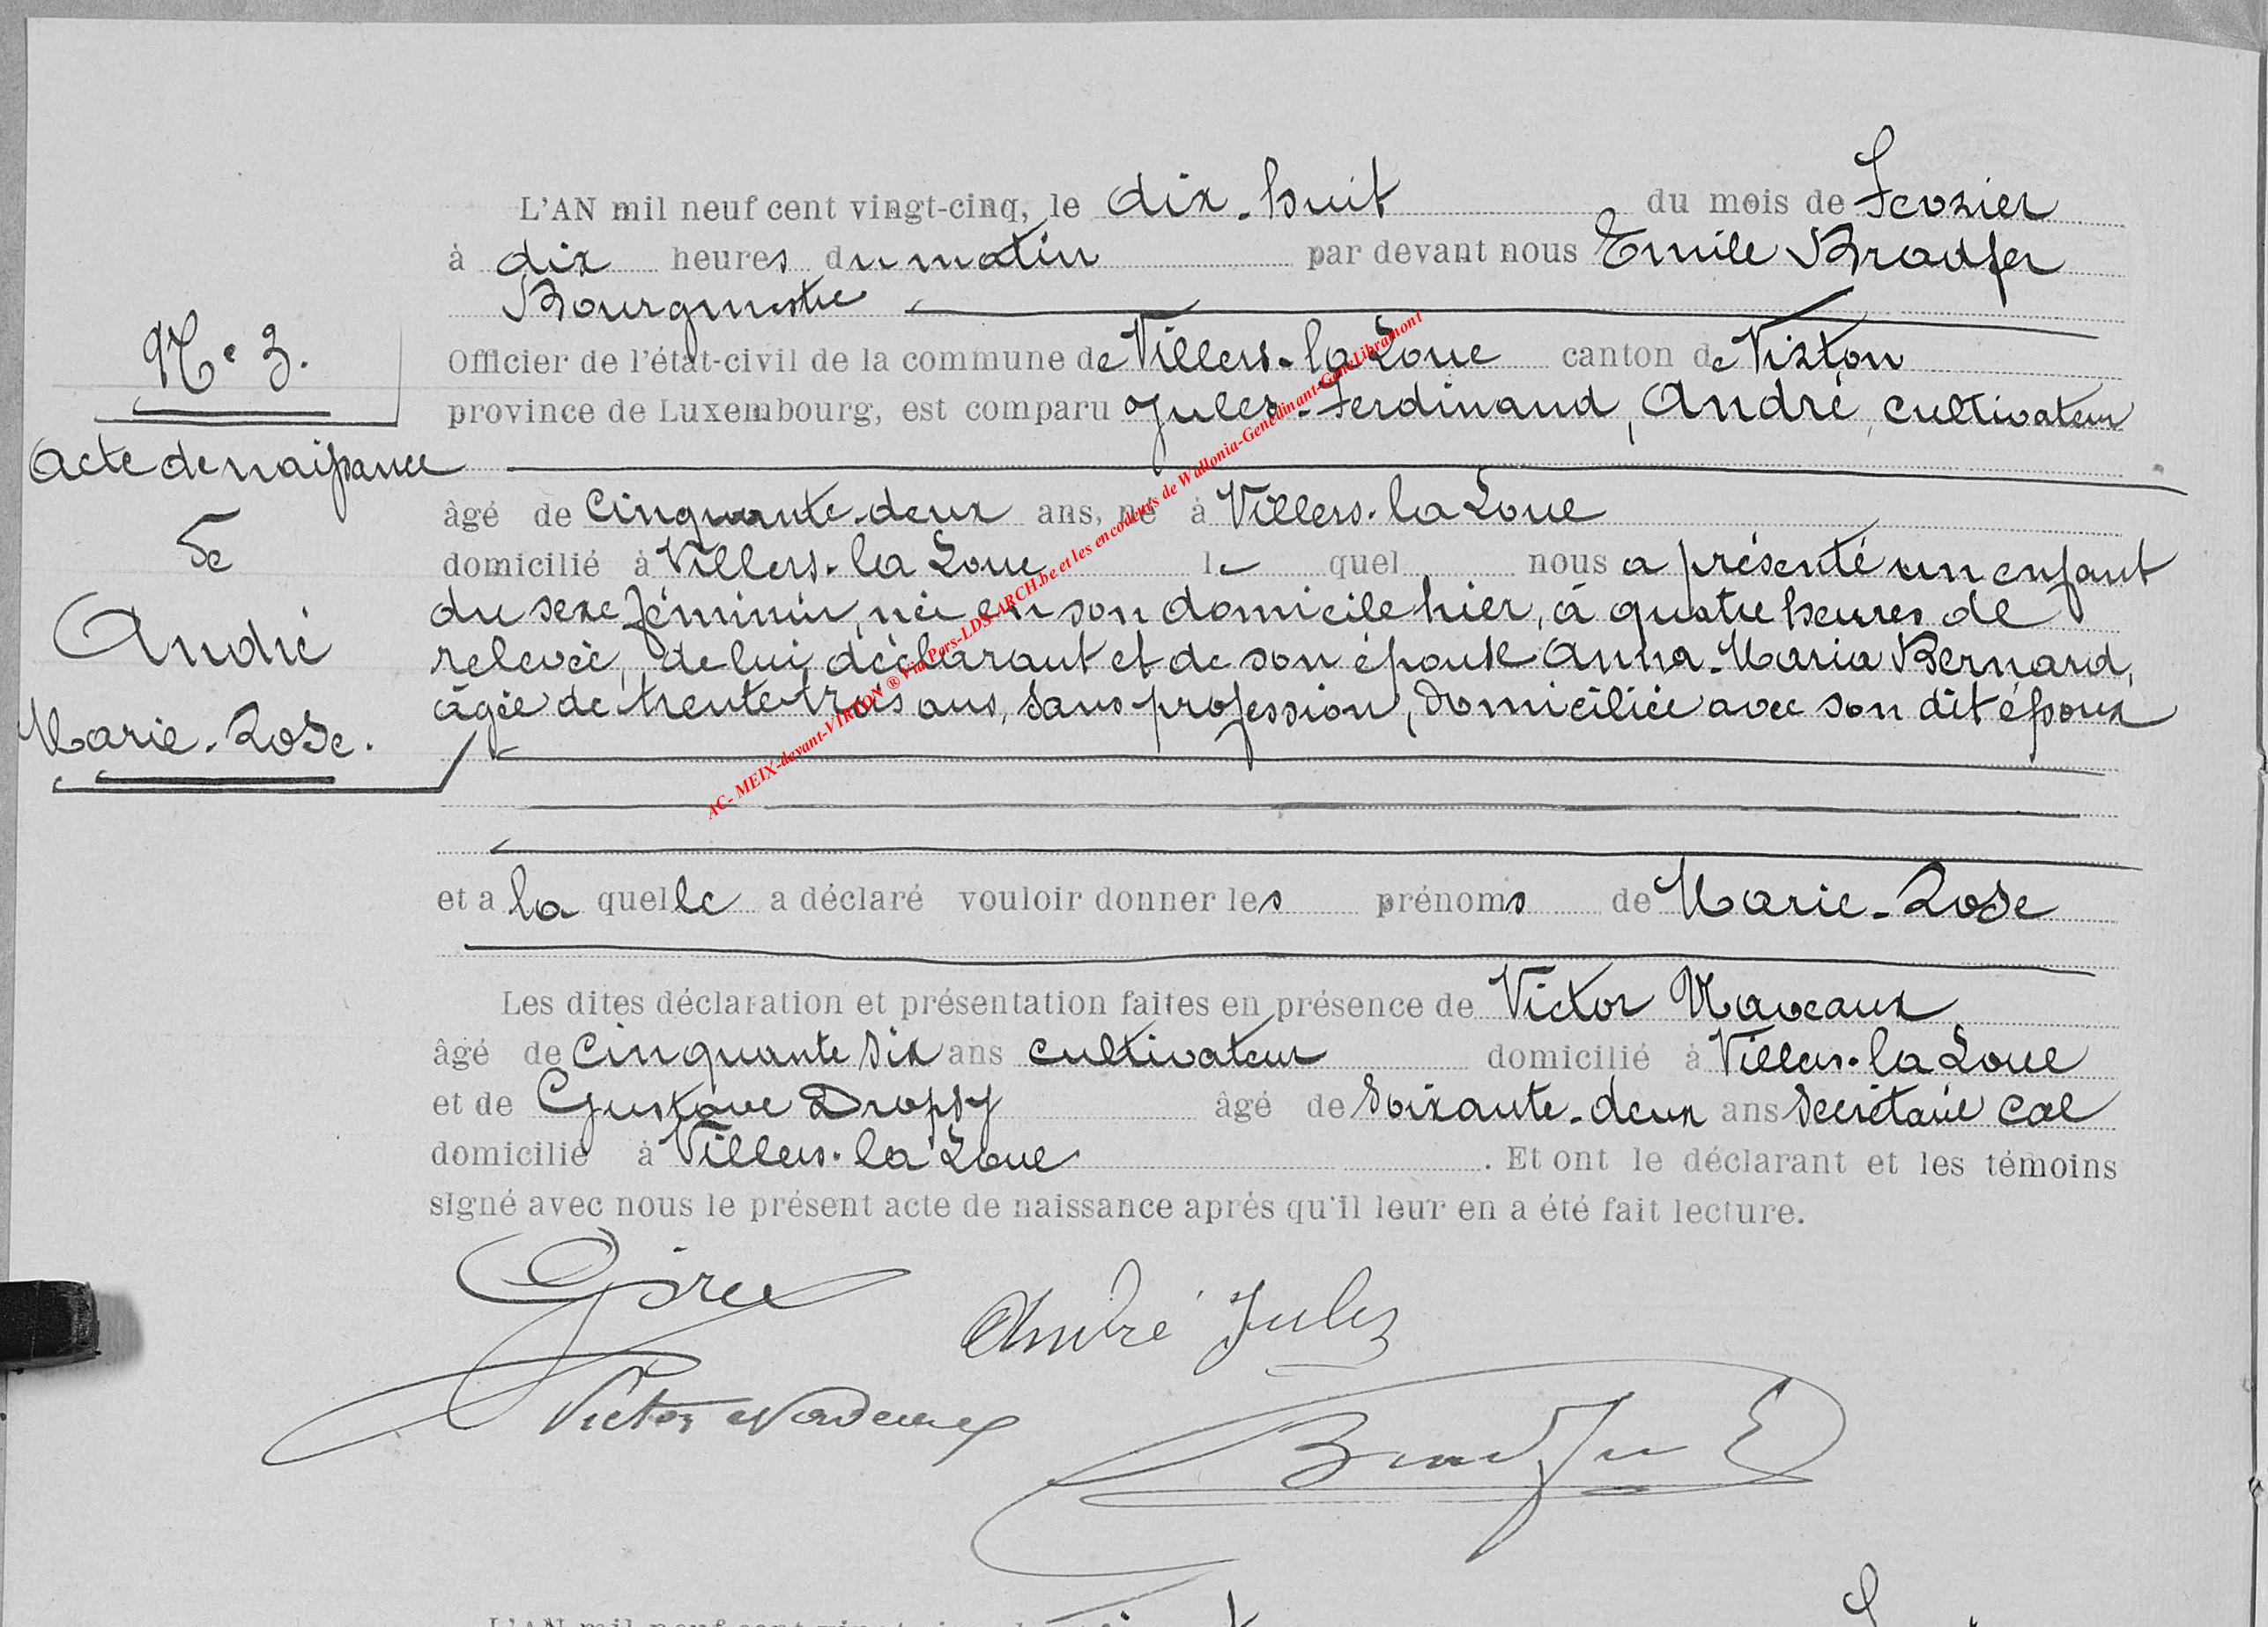 L'AN mil neuf cent vingt-cinq, le dix-huit du mois de Fevrier
à dix heures du matin par devant nous Emile Bradfer
Bourgmestre
N° 3.
Officier de l'état-civil de la commune de Villers-la Loue canton de Virton
province de Luxembourg, est comparu Jules-Ferdinand, André, cultivateur
Acte de naissance
âgé de cinquante-deux ans, né à Villers-la Loue
de
domicilié à Villers-la Loue le quel nous a présenté un enfant
du sexe féminin, née en son domicile hier, à quatre heures de
André
relevée, de lui déclarant et de son épouse Anna-Maria Bernard,
âgée de trente trois ans, sans profession, domiciliée avec son dit époux
Marie-Rose.
AC- MEIX-devant-VIRTON ® Via Pers-LDS-ARCH.be et les encodeurs de Wallonia-Genedinant-GeneLibramont
et a la quelle a déclaré vouloir donner les prénoms de Marie-Rose
Les dites déclaration et présentation faites en présence de Victor Naveaux
âgé de cinquante six ans cultivateur domicilié à Villers-la Loue
et de Gustave Dropsy âgé de soixante-deux ans secrétaire cal
domicilié à Villers-la Loue . Et ont le déclarant et les témoins
signé avec nous le présent acte de naissance après qu'il leur en a été fait lecture.
André Jules
Victor Naveaux
Bradfer E
L'AN mil neuf cent